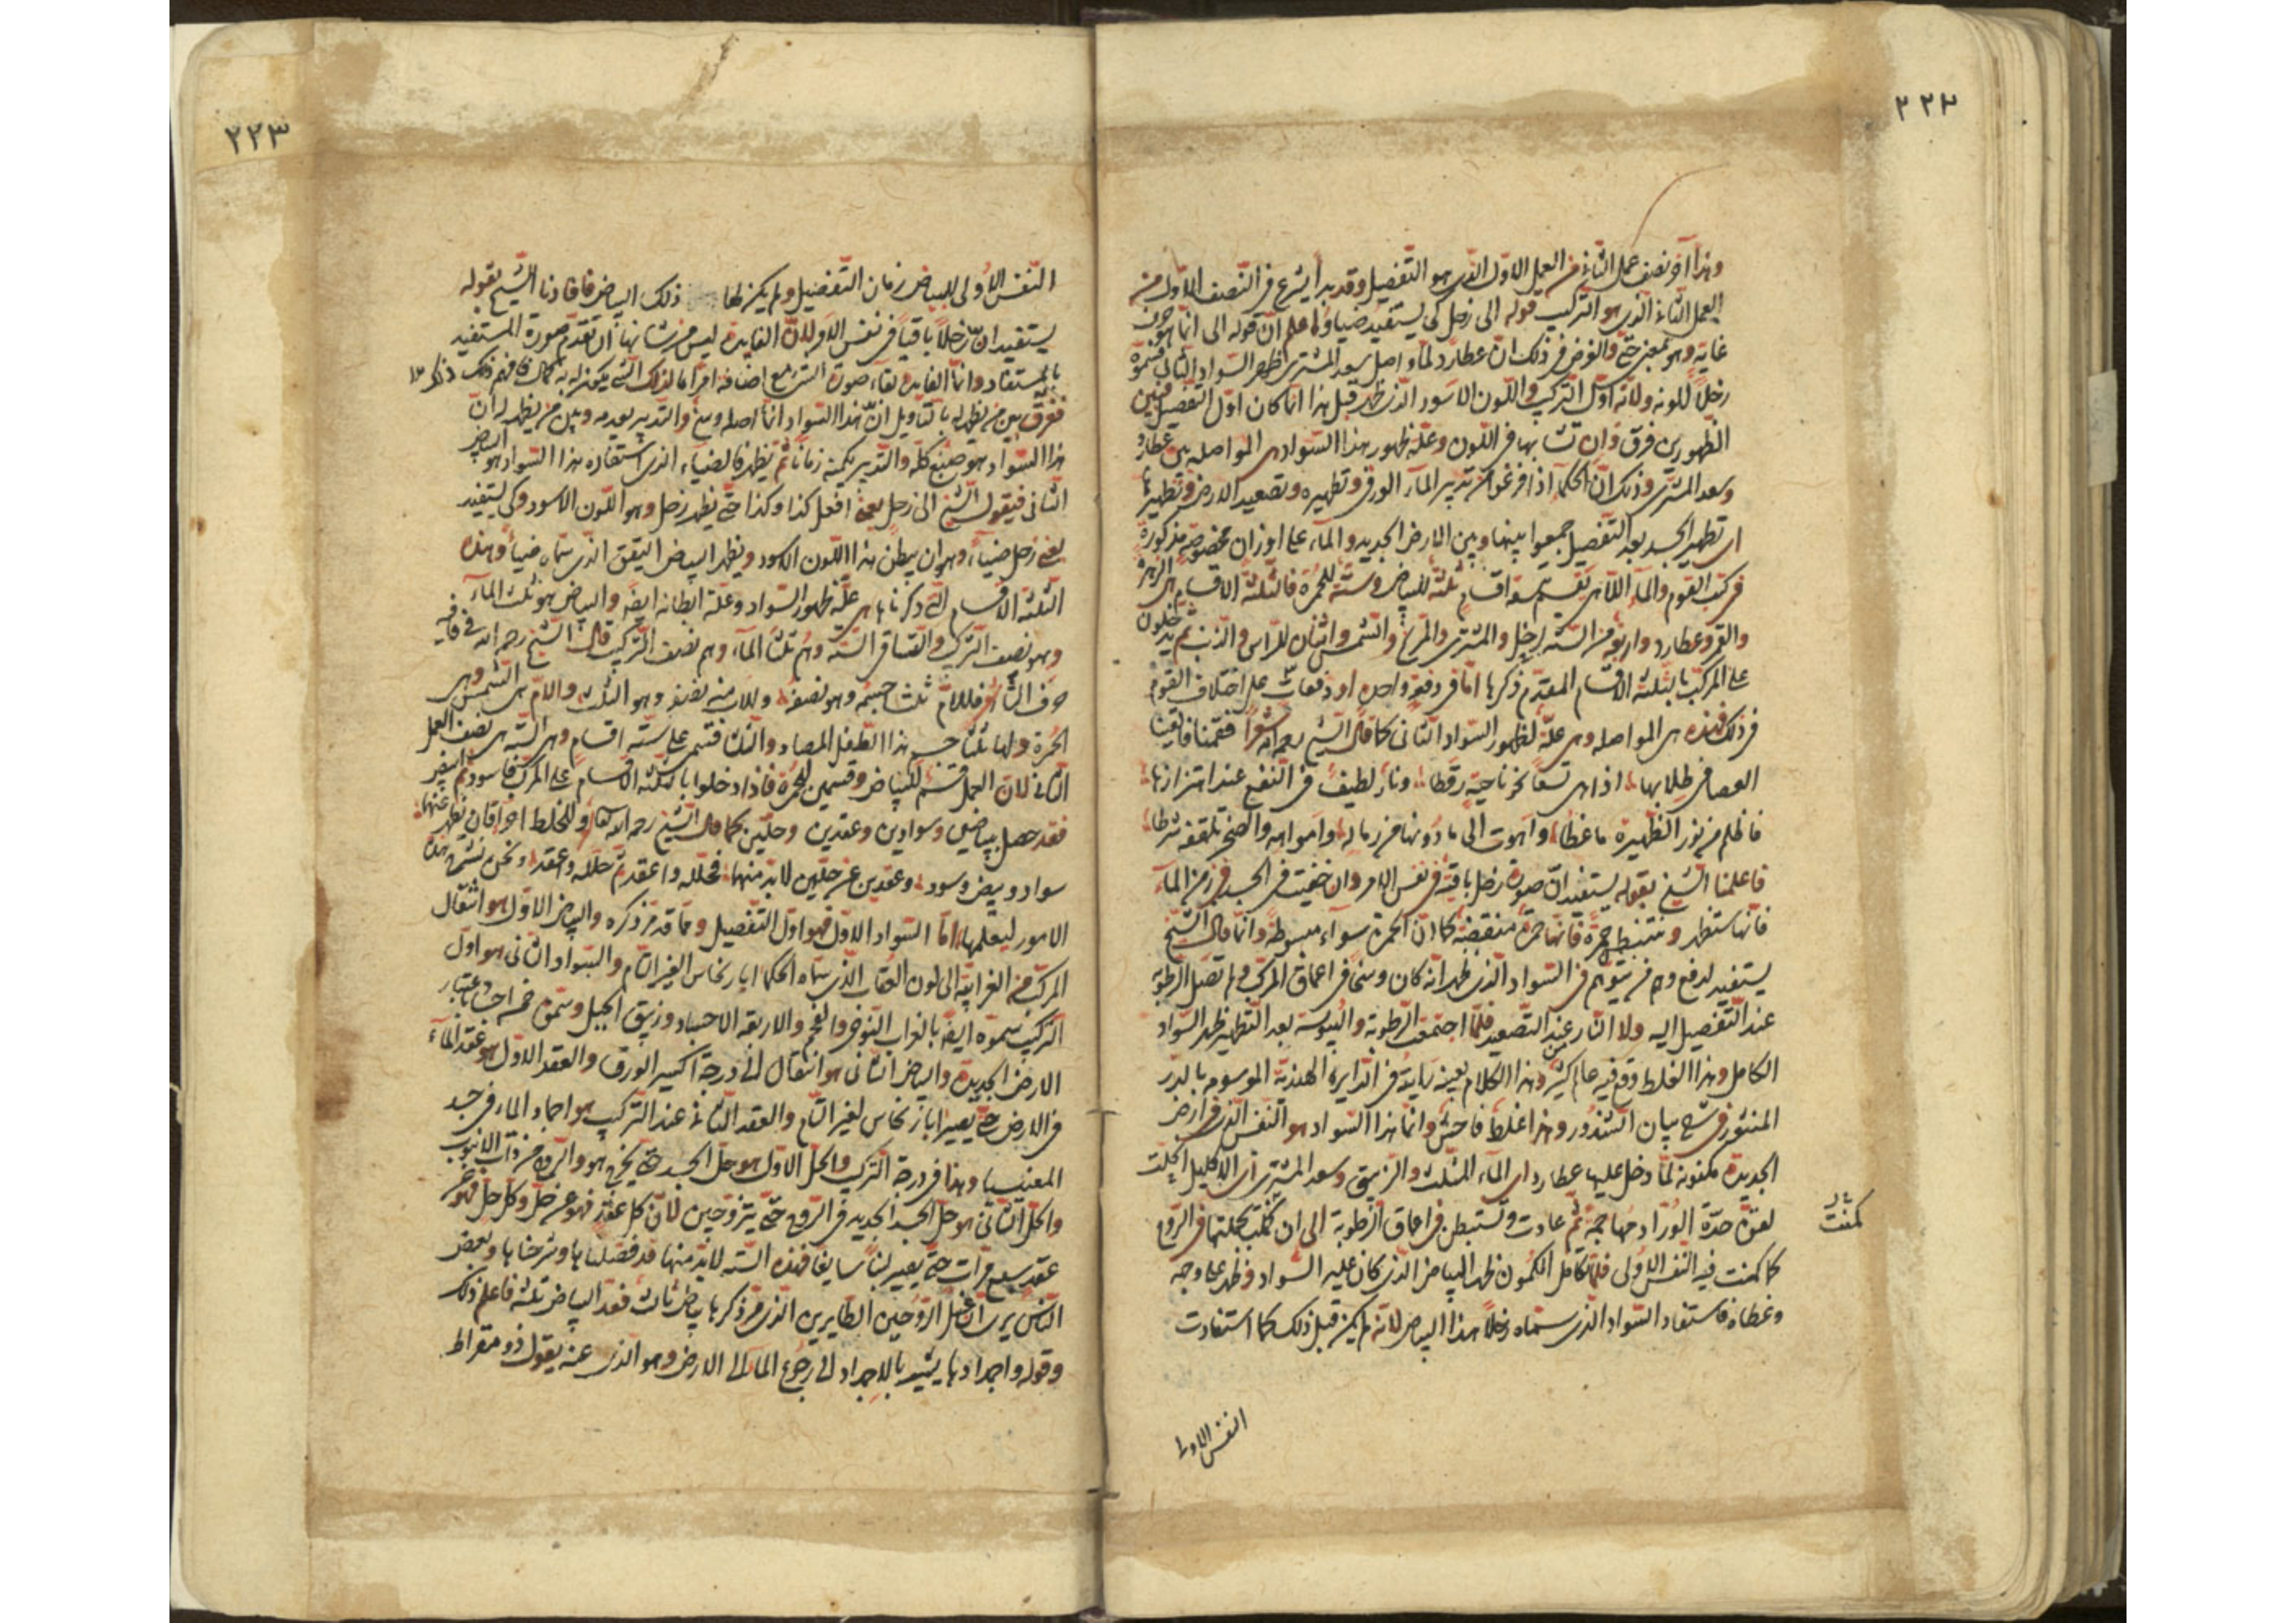 ٢٢٣
وهذا آخر نصف عمل الثاني من العمل الاول الذي هو التفصيل وقد بدأ يشرع في النصف الاول من
العمل الثاني الذي هو التركيب قوله الى زحل كي يستفيد ضياءً اعلم ان قوله الى انما هو حرف
غاية وهو بمعنى حتى والغرض في ذلك ان عطارد لما واصل سعد المشتري ظهر السواد الثاني فسموه
زحلاً للونه ولانه اول التركيب واللون الاسود الذي ظهر قبل هذا انما كان اول التفصيل فبين
الظهورين فرق وان تشابها في اللون وعلة ظهور هذا السواد هي المواصلة بين عطارد
وسعد المشتري وذلك ان الحكماء اذا فرغوا من تدبير الماء الورقي وتطهيره وتصعيد الارض وتطهيرها
اي تطهير الجسد بعد التفصيل جمعوا بينها وبين الارض الجديدة والماء على اوزان مخصوصة مذكورة
في كتب القوم والماء الالهي يقسم تسعة اقسام ثلثة للبياض وستة للحمرة فالثلثة الاقسام هي الزهرة
والقمر وعطارد واربعة من الستة لزحل والمشتري والمريخ والشمس واثنان للراس والذنب ثم يدخلون
على المركب بالثلثة الاقسام المتقدم ذكرها اما في دفعة واحدة او دفعات على اختلاف القوم
في ذلك فهذه هي المواصلة وهي علة لظهور السواد الثاني كما قال الشيخ رحمه الله شعراً فقمنا فالقينا
العصا في طلابها اذا هي تسعى نحونا حية رقطا ونار لطيف في النفع عند اهتزازها
فاظلم من نور الظهيرة ما غطا واهوت الى ما دونها من رمالها وامواهها والصخر تلقفه شرطا
فاعلمنا الشيخ بقوله يستفيد ان صورة زحل باقية في نفس الامر وان خفيت في الجسد في زمن الماء
فانها ستظهر وتستبطن حمرة فانها حمرة منقبضة كما ان الحمرة سواء مبسوطة وانما قال الشيخ
يستفيد لدفع وهم من يتوهم في السواد الذي ظهر انه كان وسخا في اعماق المركب ولم تصل الرطوبة
عند التفصيل اليه ولا النار عند التصعيد فلما اجتمعت الرطوبة واليبوسة بعد التطهير ظهر السواد
الكامل وهذا الغلط وقع فيه عالم كثير وهذا الكلام بعينه رايته في الدايرة الهندية الموسوم بالدر
المنثور في شرح بيان الشذور وهذا غلط فاحش وانما هذا السواد هو النفس الذي في ارض
الجديدة مكنونة لما دخل عليها عطارد اي الماء المثلث والزيبق وسعد المشتري اي الاكليل
لعزة حدة النور ادحما حمرة ثم عادت وتستبطن في اعماق الرطوبة الى ان كمنت بجملتها في الروح
كمنت
كما كمنت فيه النفس الاولى فلما تكامل الكمون ظهر البياض الذي كان عليه السواد فظهر على وجه
وغطاه فاستفاد السواد الذي سماه زحلاً هذا البياض لانه لم يكن قبل ذلك كما استفادت
النفس الاولى
٢٢٣
النفس الاولى للبياض زمان التفصيل ولم يكن لها ذلك البياض فافادنا الشيخ بقوله
يستفيد ان زحلاً باقياً في نفس الامر لان الفايدة ليس من شانها ان تقدم صورة المستفيد
بالمستفاد وانما الفايدة لقاء صورة الشيء مع اضافة امر اما لذلك الشيء يكون له به كمال فافهم ذلك
ففرق بين من يظهر له بالتاويل ان هذا السواد انما اصله وسخ والتدبير يعدمه وبين من يظهر له ان
هذا السواد هو صبغ كله والتدبير يكمنه زماناً ثم يظهر فالضياء الذي استفاده هذا السواد هو البياض
الثاني فيقول الشيخ الى زحل يعني افعل كذا وكذا حتى يظهر زحل وهو اللون الاسود وكي يستفيد
يعني زحل ضياءً وهو ان يبطن هذا اللون الاسود ويظهر البياض اليقق الذي سماه ضياءً وهذه
الثلثة الاقسام التي ذكرناها هي علة ظهور السواد وعلة ابطانه ايضا والبياض هو ثلث الماء
وهو نصف التركيب والباقي الستة وهم ثلثا الماء وهم نصف التركيب قال الشيخ رحمه الله في قافية
حرف الثاء فللام ثلثا جسمه وهو نصفه وللاب منه نصف وهو الثلث والام هي الشمس وهي
الحمرة ولها ثلثا جسم هذا الطفل المصاد والثلثا قسم على ستة اقسام وهي الستة هي نصف العمل
الثاني لان العمل قسم للبياض وقسمين للحمرة فاذا دخلوا بالثلثة الاقسام على المركب فاسود ثم ابيض
فقد حصل بياضين وسوادين وعقدين وحلين كما قال الشيخ رحمه الله تعالى وللخلط احراقان تظهر عنهما
سواد وبيض وسود وعقدين عن حلين لابد منهما فحلله واعقد ثم حلله واعقد ونحن نشرح هذه
الامور ليعلمها اما السواد الاول فهو اول التفصيل ومما قد مر ذكره والبياض الاول هو انتقال
المركب من الغرابية الى لون العقاب الذي سماه الحكماء ابار نحاس الغير التام والسواد الثاني هو اول
التركيب سموه ايضا بالغراب النوحي والفحم والاربعة الاجساد وزيبق الجبل وسموه خمسة اجساد باعتبار
الارض الجديدة والبياض الثاني هو انتقال الى درجة اكسير الورق والعقد الاول هو عقد الماء
في الارض حتى يصير ابار نحاس لغير التام والعقد الثاني عند التركيب هو اجماد الماء في جسد
المغنيسيا وهذا في درجة التركيب والحل الاول هو حل الجسد حتى يخرج هو والروح من ذات الانبوب
والحل الثاني هو حل الجسد الجديد في الروح حتى يتزوجين لان كل عقد فهو عن حل وكل حل فهو عن
عقد سبع مرات حتى يصير لبناً سايغا فهذه الستة لابد منها قد فصلناها وشرحناها وبعض
الناس يرى ان غسل الزوجين الطايرين الذي مر ذكرها بياض ثالث فعد البياض ثلثة فاعلم ذلك
وقوله واجمادها يشير بالاجماد الى رجوع الماء الى الارض وهو الذي عنه يقول ذو مقراط